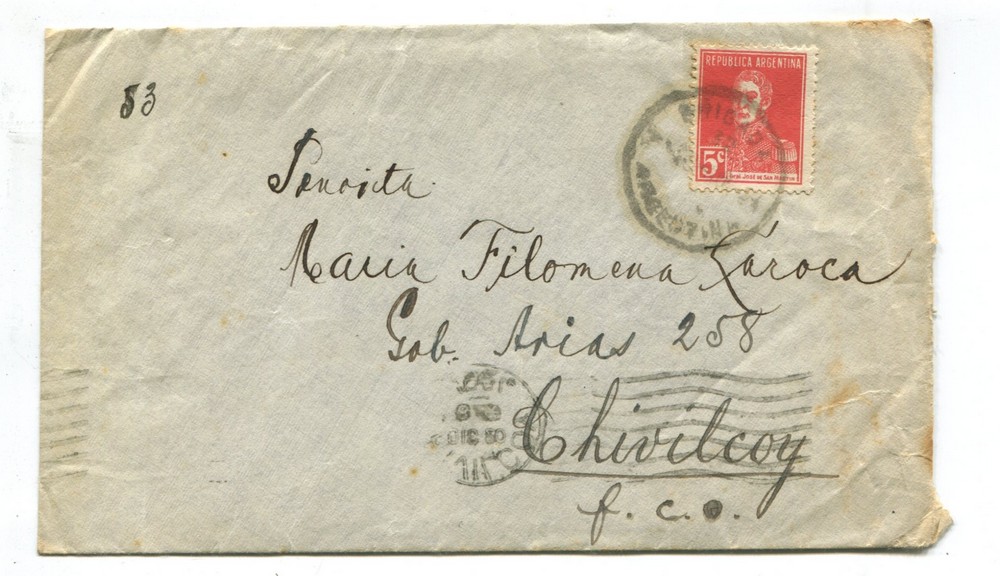 REPUBLICA ARGENTINA
5c
GRAL JOSÉ DE SAN MARTIN
ARGENTINA
53
Señorita
Maria Filomena Laroca
Gob. Arias 258
Chivilcoy
f. c. o.